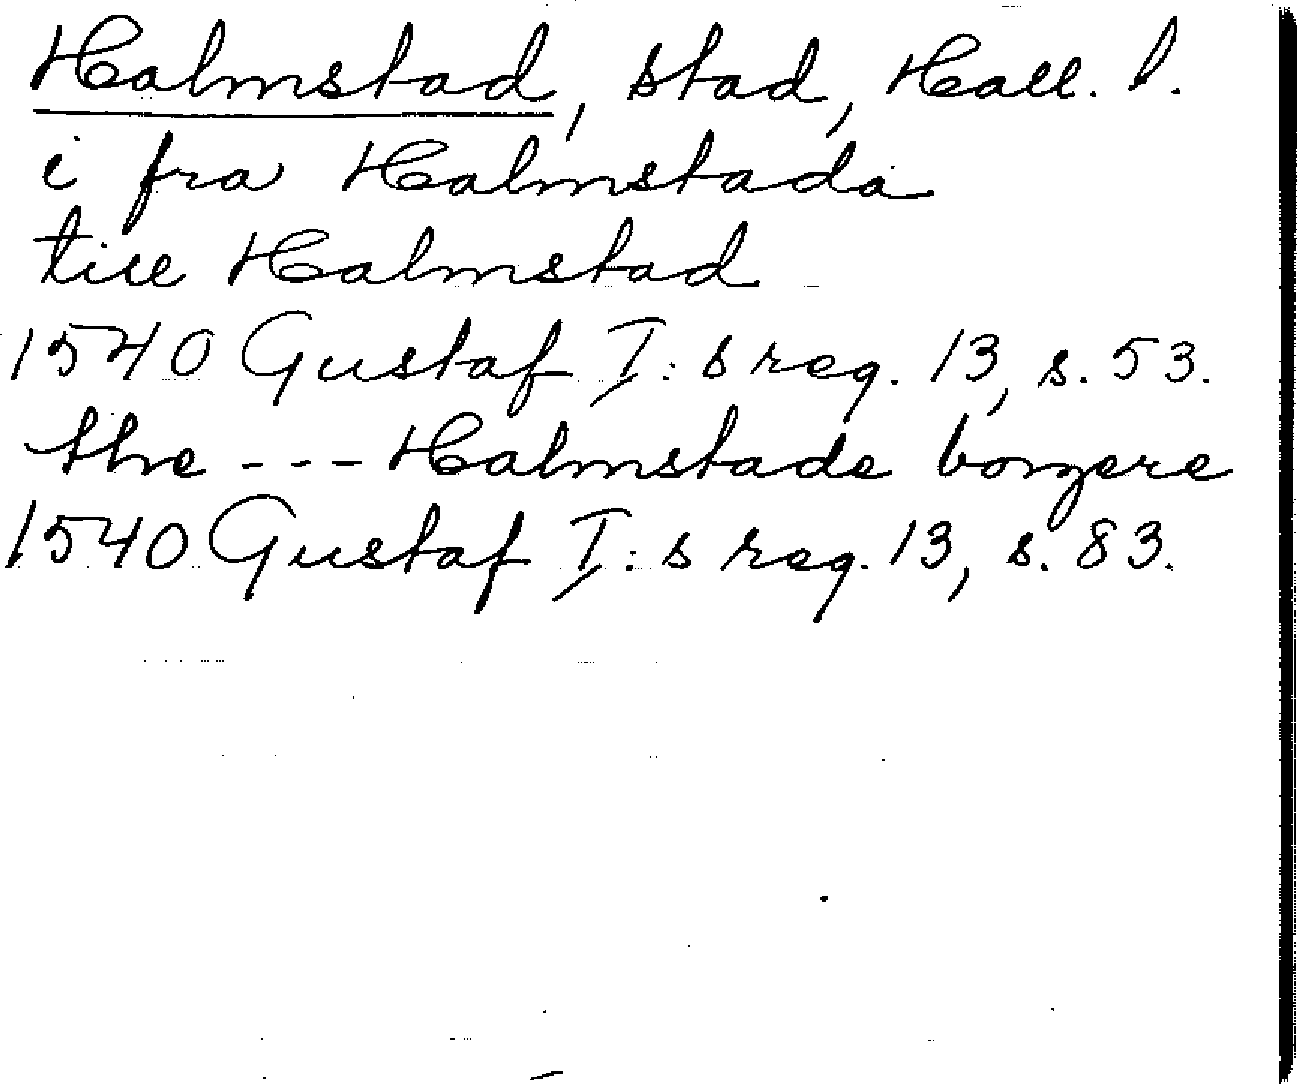 Halmstad, stad, Hall. l.
i fra Halmstada
till Halmstad
1540 Gustaf I:s reg. 13, s. 53.
the --- Halmstade borgere
1540 Gustaf I:s reg. 13, s. 83.